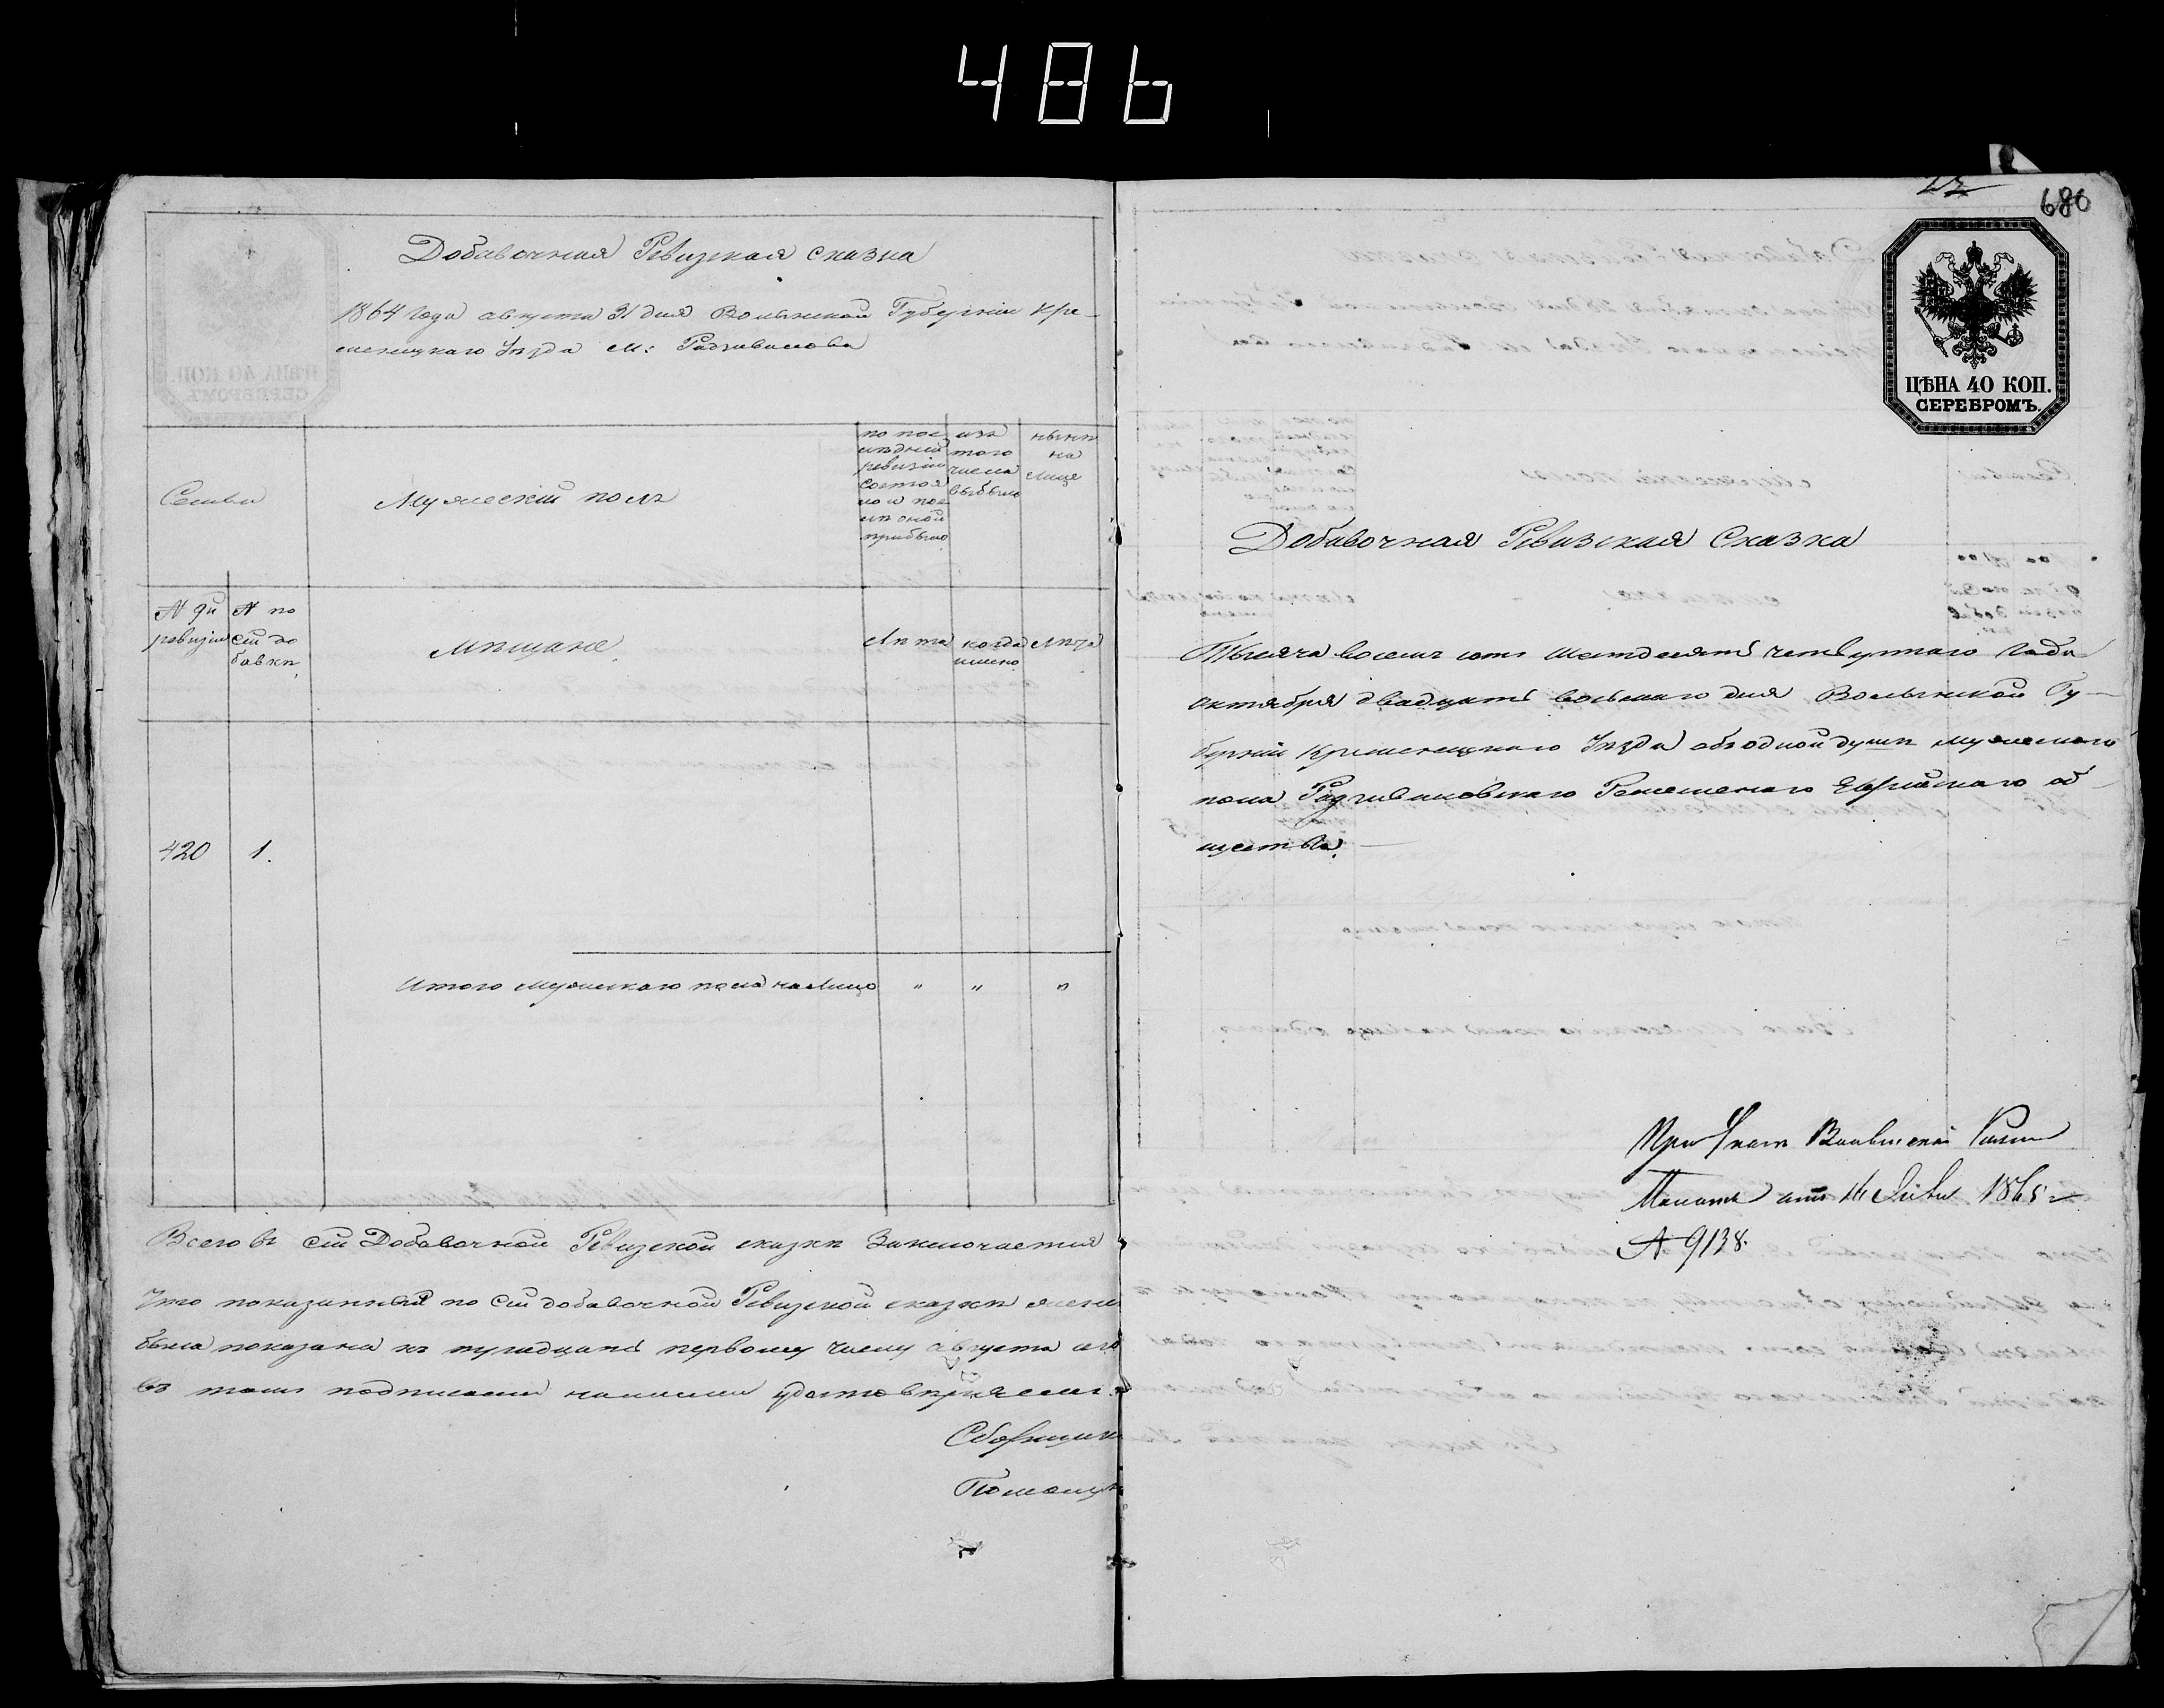 486
Добавочная Ревизская сказка
1864 года августа 31 дня Волынской Губернии Кре-
менецкаго Уѣзда м: Радзивилова
Семьи
Мужескій полъ
по пос
лѣдней
ревизіи
состоя
ло и пос
лѣ оной
прибыло
изъ
того
числа
выбыло
нынѣ
на
лице
№ 9й
ревизіи
№ по
сей до
бавкѣ
мѣщане
лѣта
когда
имено
лѣта
420 1.
Итого мужескаго пола налицо " " "
Всего въ сей Добавочной Ревизской сказкѣ Заключается
Что показанный по сей добавочной Ревизской сказкѣ
была показана къ тридцать первому числу августа
въ томъ подписомъ нашимъ удостовѣряемъ.
Сборщик
Помощн
27
680
ЦѢНА 40 КОП.
СЕРЕБРОМЪ.
Добавочная Ревизская Сказка
Тысяча восемь сотъ шестдесятъ четвертаго Года
октября двадцать восьмаго дня Волынской Гу-
берніи Кременецкаго Уѣзда объ одной душѣ мужескаго
пола Радзивиловскаго Еврейскаго об-
щества.
При Указѣ Волынской Казен
Палаты отъ 1865 г
№ 9138.